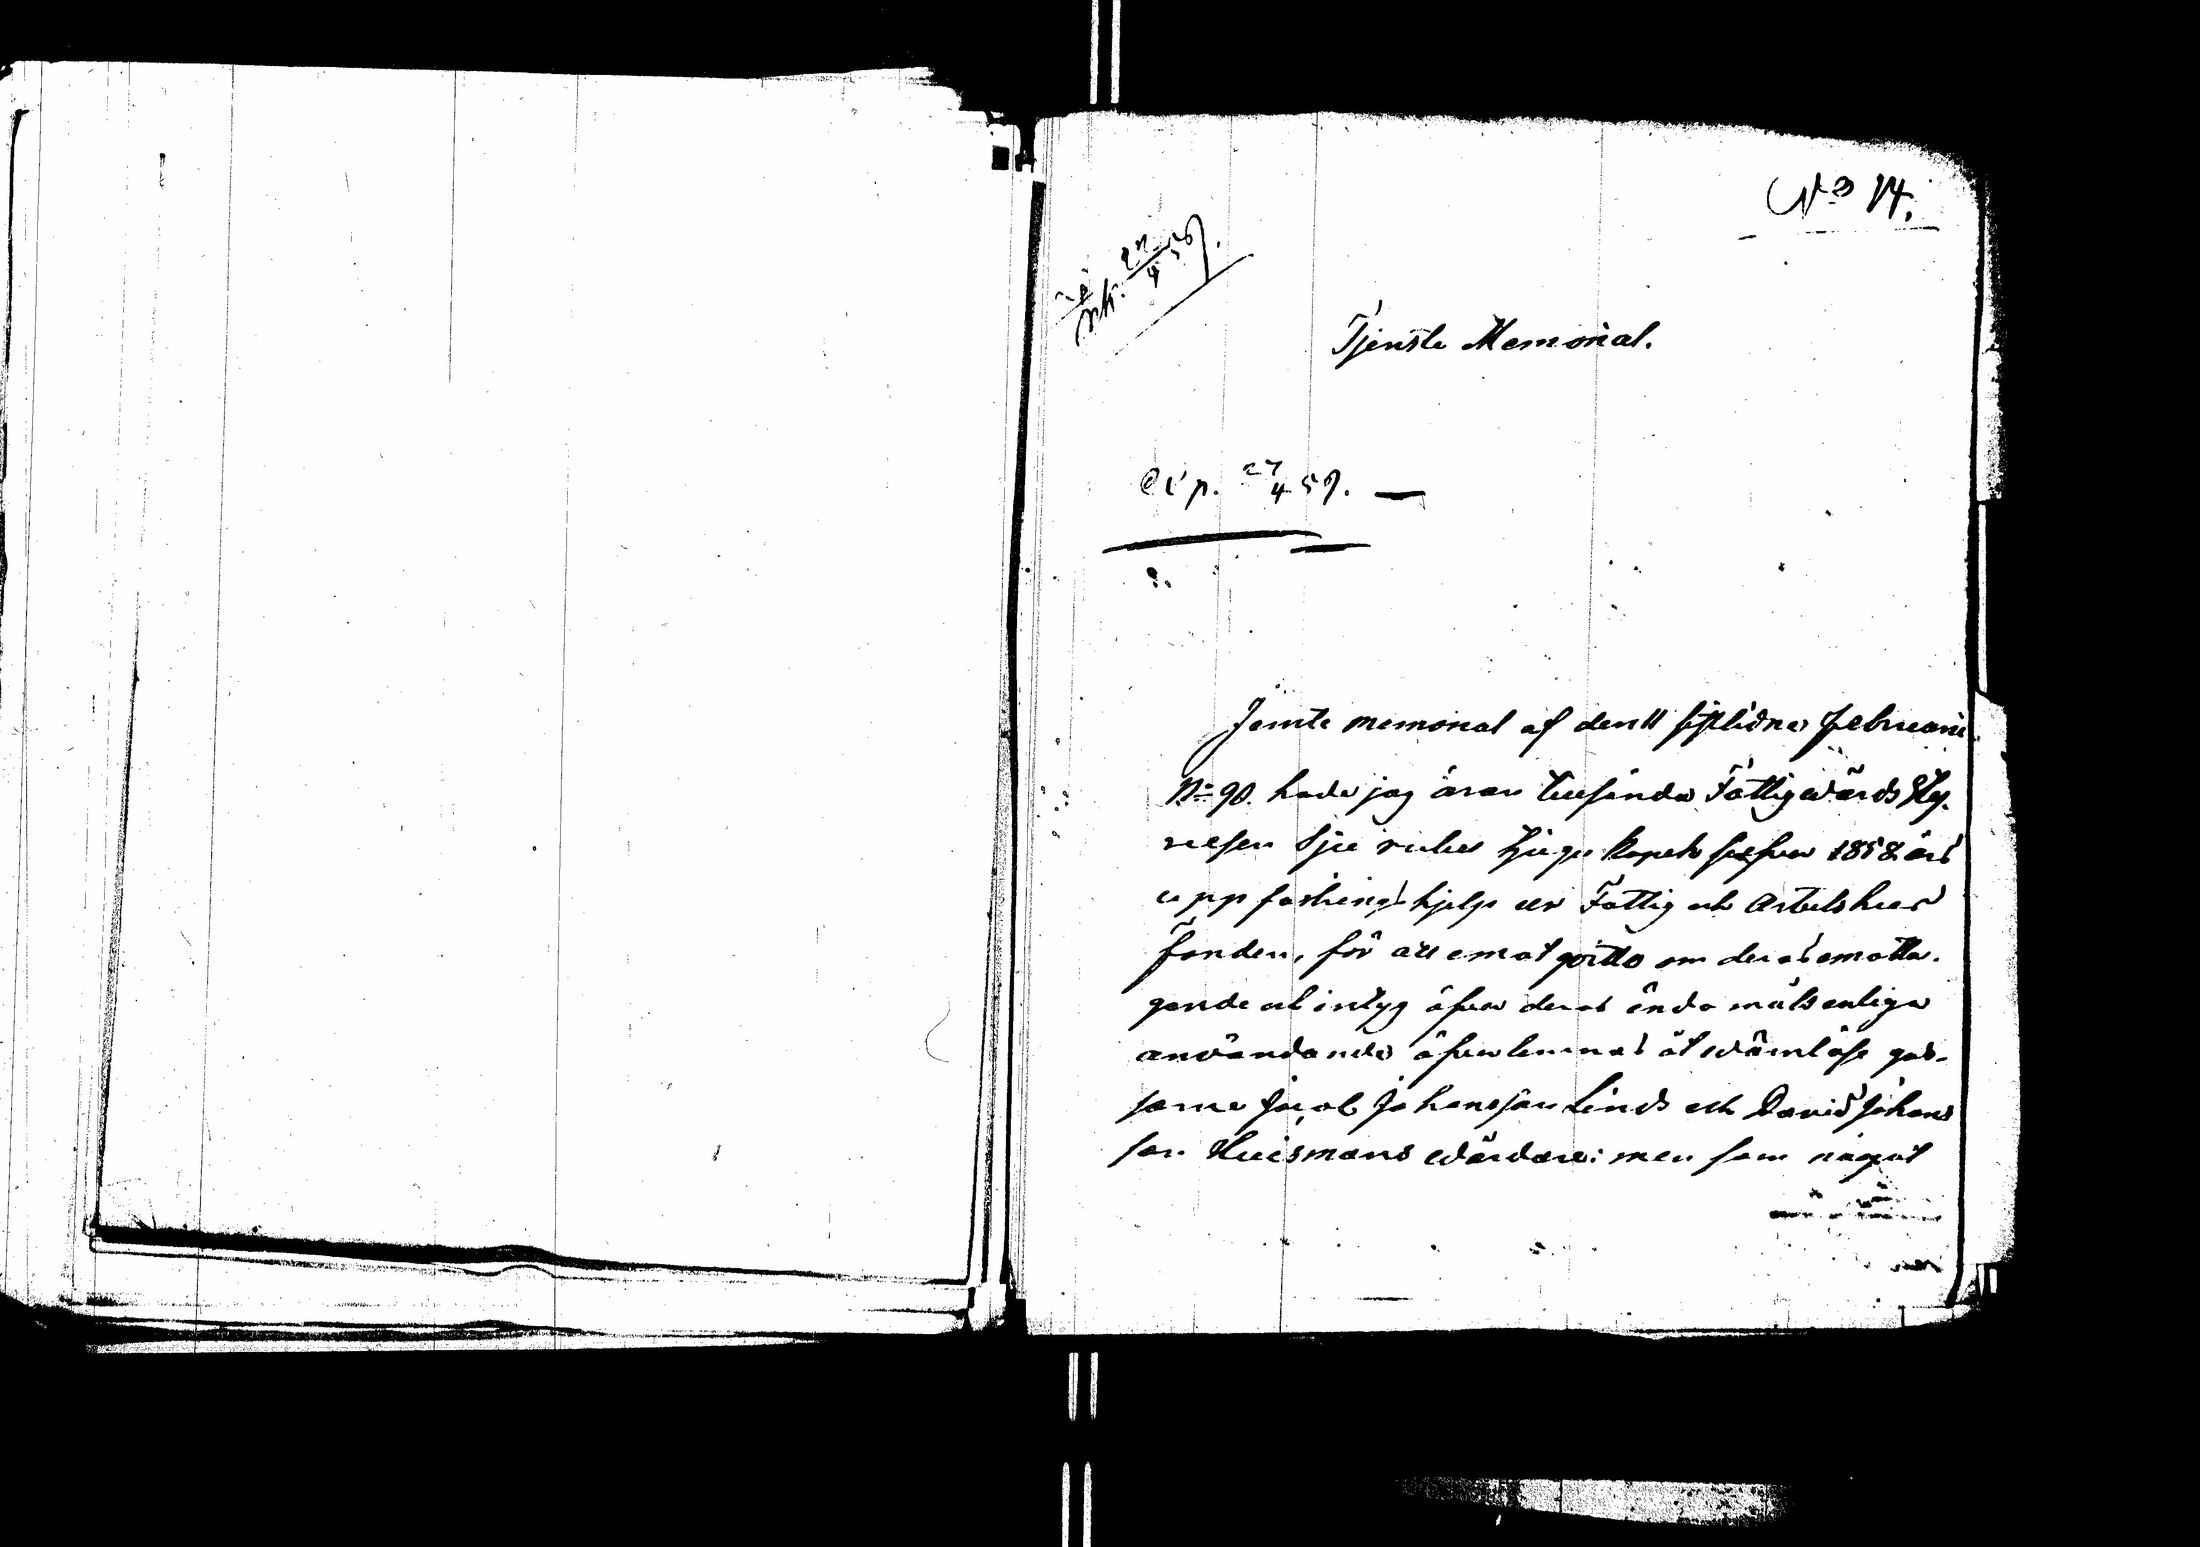 No 14.
27/4 59.
Tjenste Memorial.
Exp. 27/4 59. —
Jemte memorial af den 11 sistlidne Februarii
No 90. hade jag äran tillsända Fattigvårds Sty-
relsen Sju rubel tjugu kopek silfver 1858 års
uppfostringshjelp ur Fattig och Arbetshus
fonden, för att emot qvitto om deras emotta-
gande och intyg öfver deras ändamålsenliga
användande öfverlemnas åt wärnlöse gos-
sarne Jacob Johansson Linds och David Johans
son Huismans wårdare: men som något